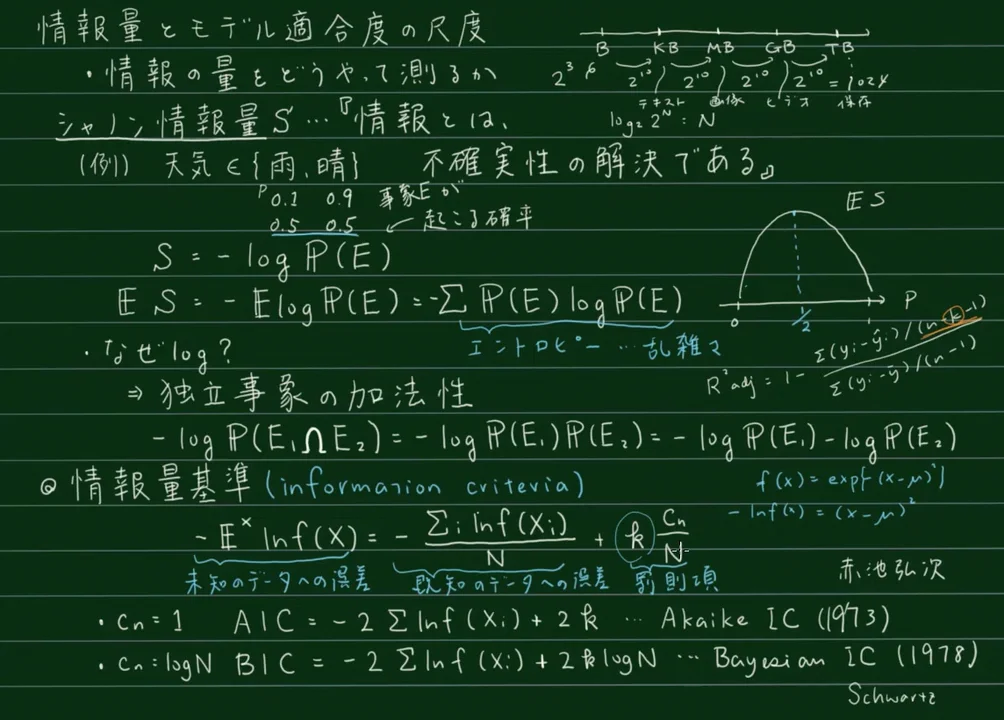 情報量とモデル適合度の尺度
・情報の量をどうやって測るか
B KB MB GB TB
2³ 2¹⁰ 2¹⁰ 2¹⁰ 2¹⁰ = 1024
テキスト 画像 ビデオ 保存
log₂ 2^N = N
シャノン情報量S…『情報とは、
(例) 天気∈{雨,晴} 不確実性の解決である』
P 0.1 0.9 事象Eが
0.5 0.5 ← 起こる確率
S = -log P(E)
E S = -E log P(E) = -Σ P(E) log P(E)
エントロピー…乱雑さ
E S
0 1/2 1 P
・なぜlog?
⇒ 独立事象の加法性
R²adj = 1 - Σ(yi-ŷi)/(n-k-1) / Σ(yi-ȳ)/(n-1)
-log P(E₁∩E₂) = -log P(E₁)P(E₂) = -log P(E₁) - log P(E₂)
◎ 情報量基準 (information criteria)
f(x) = exp{-(x-μ)²}
-lnf(x) = (x-μ)²
-E^x lnf(X) = - Σi lnf(Xi) / N + k Cn / N
未知のデータへの誤差 既知のデータへの誤差 罰則項
赤池弘次
・Cn=1 AIC = -2 Σ lnf(Xi) + 2k … Akaike IC (1973)
・Cn=logN BIC = -2 Σ lnf(Xi) + 2k logN … Bayesian IC (1978)
Schwartz